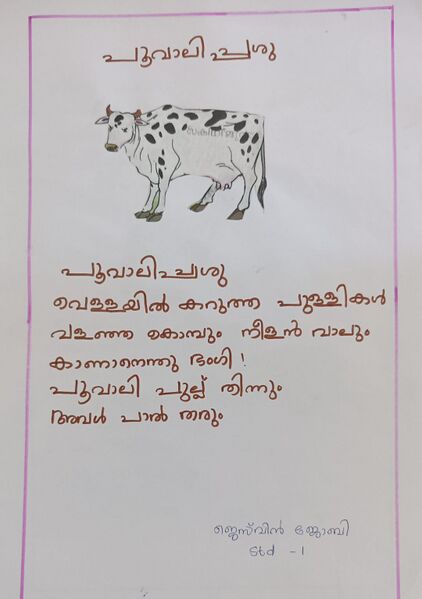 പൂവാലി പ്പശു
പൂവാലിപ്പശു
വെള്ളയിൽ കറുത്ത പുള്ളികൾ
വളഞ്ഞ കൊമ്പും നീളൻ വാലും
കാണാനെന്തു ഭംഗി!
പൂവാലി പുല്ല് തിന്നും
അവൾ പാൽ തരും
ജെസ്‌വിൻ ജോബി
Std - 1